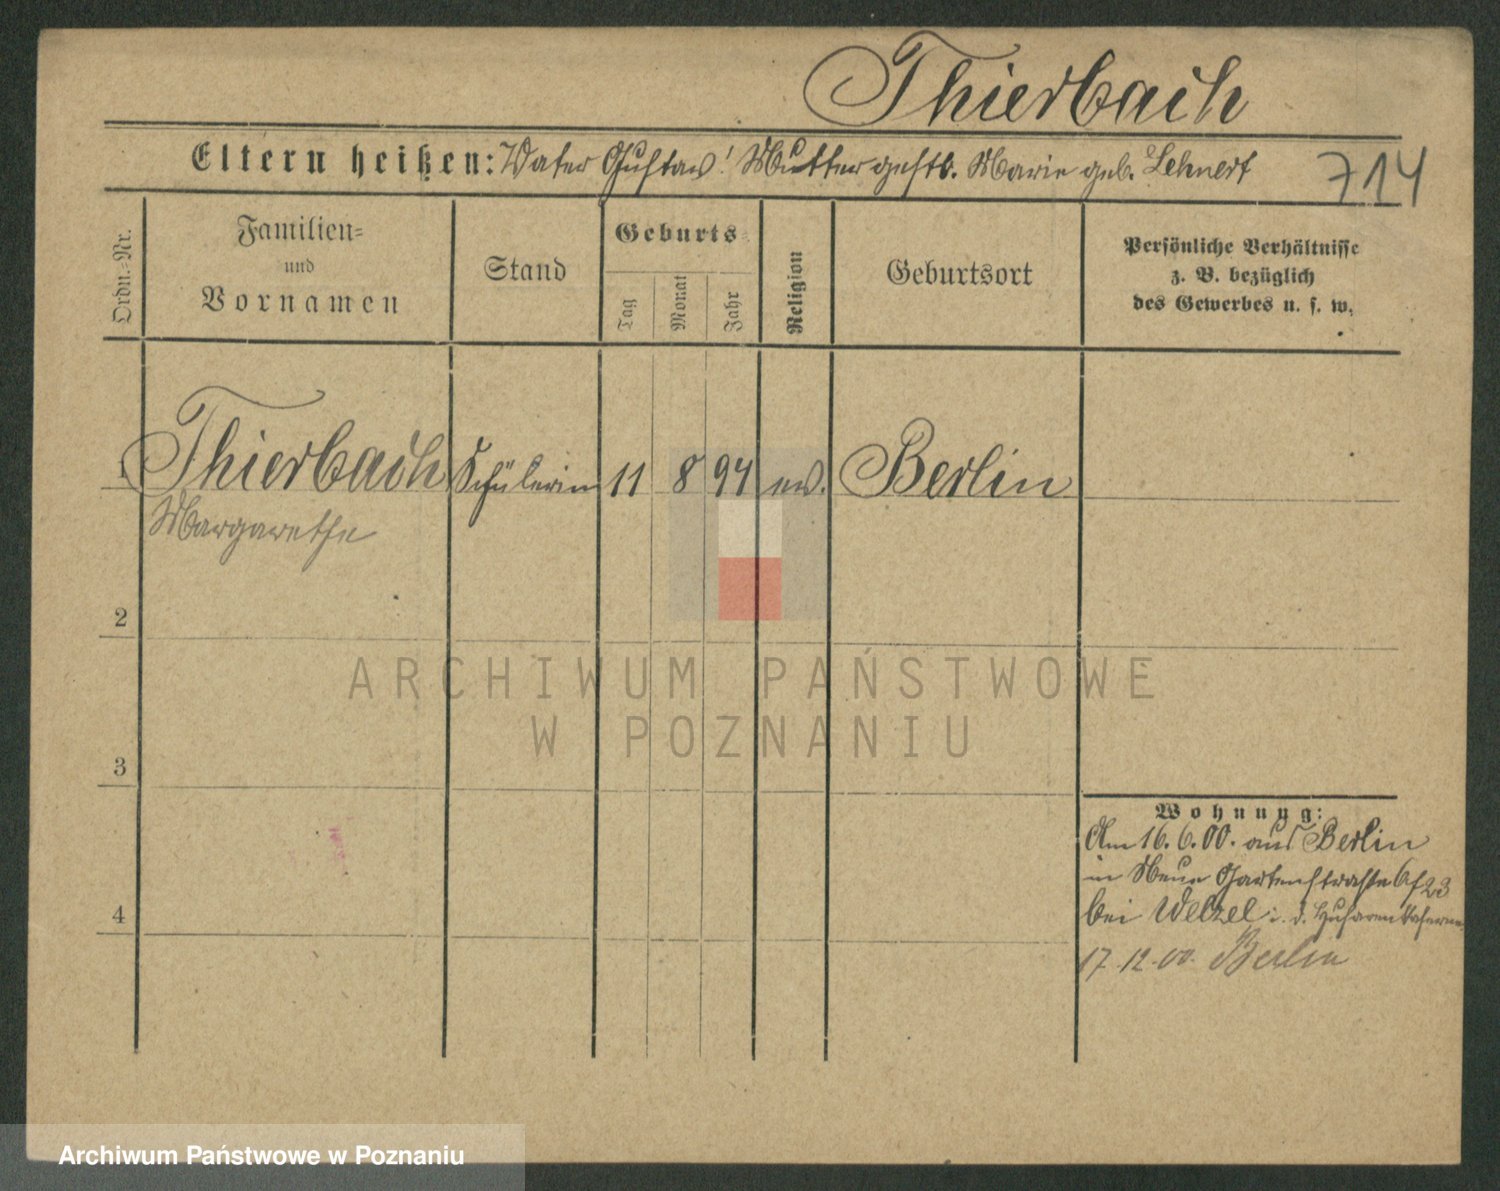 Thierbach
Eltern heißen: Vater Gustav! Mutter gestb. Marie geb. Lehnert
714
Ordn.-Nr.
Familien-
und
Vornamen
Stand
Geburts-
Tag
Monat
Jahr
Religion
Geburtsort
Persönliche Verhältnisse
z. B. bezüglich
des Gewerbes u. s. w.
1 Thierbach Schülerin 11 8 94 ev. Berlin
Margarethe
2
3
4
Wohnung:
Am 16.6.00. aus Berlin
in Neue Gartenstraße 6/23
bei Welzel i. d. Husarenkaserne
17.12.00. Berlin
ARCHIWUM PAŃSTWOWE
W POZNANIU
Archiwum Państwowe w Poznaniu